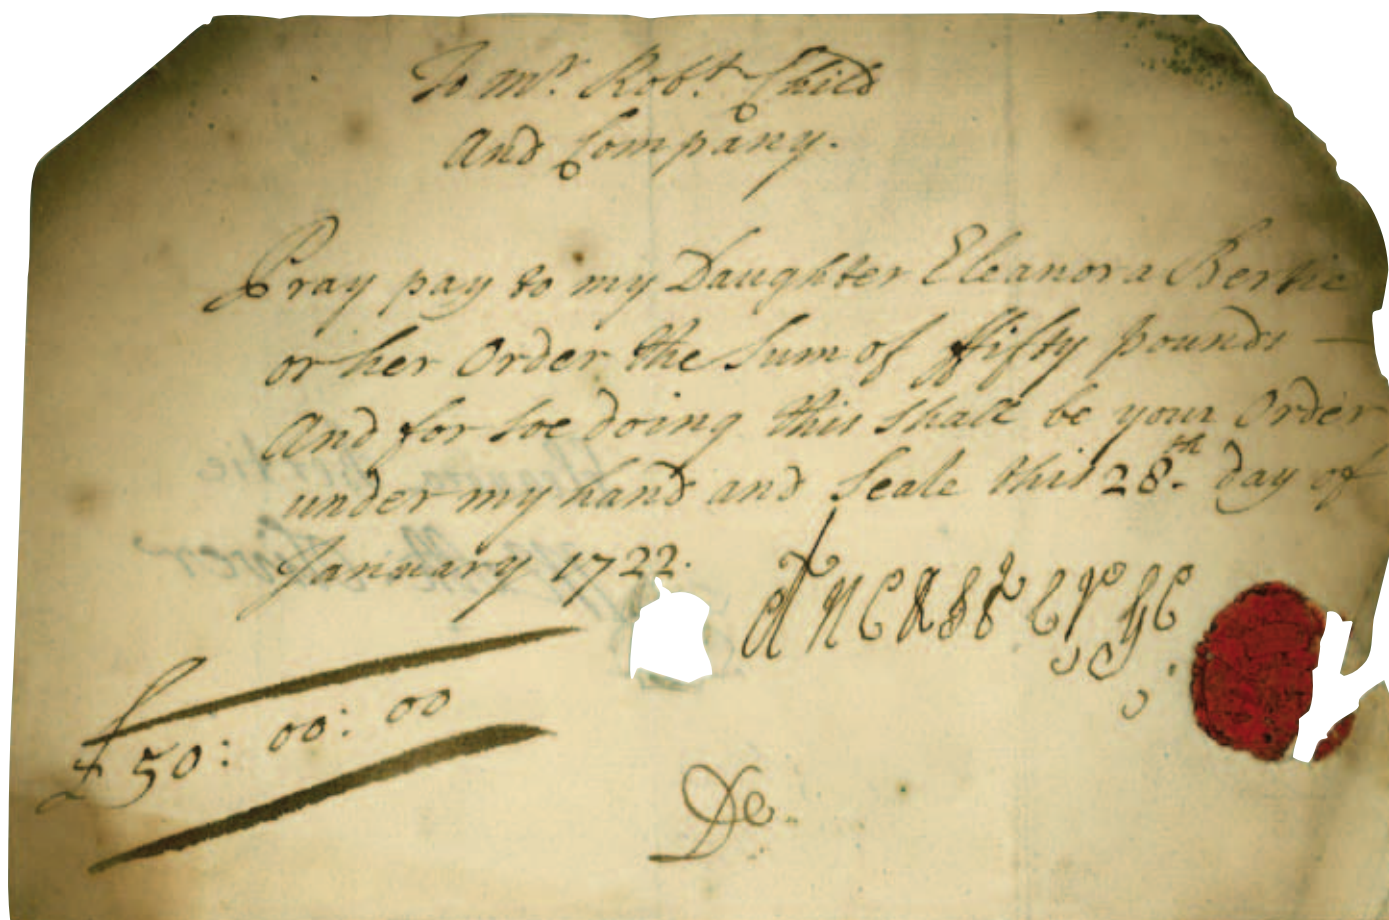 To Mr. Robt. Child
And Company.
Pray pay to my Daughter Eleanora Bertie
or her Order the Sum of ffifty pounds —
And for soe doing this shall be your Order
under my hand and Seale this 28th day of
January 1722.
Ancaster &c
£50: 00: 00
De